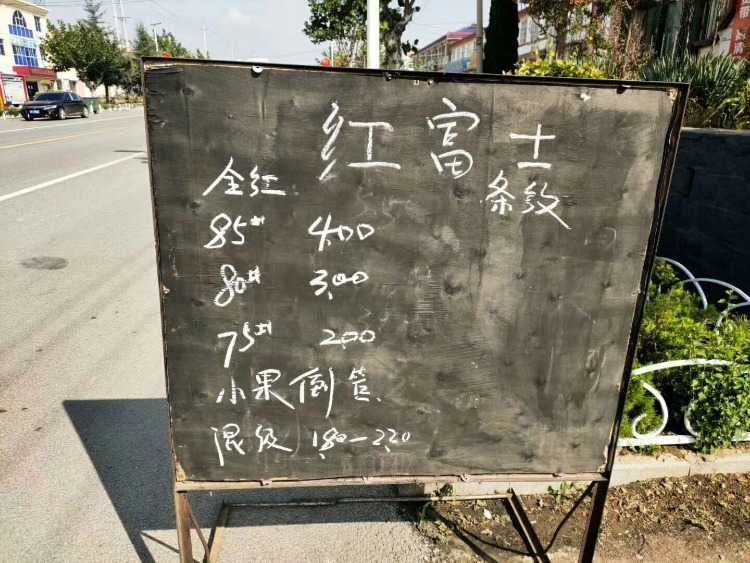 红富士
全红 条纹
85# 4.00
80# 3.00
75# 2.00
小果倒管
混级 1.80-2.20